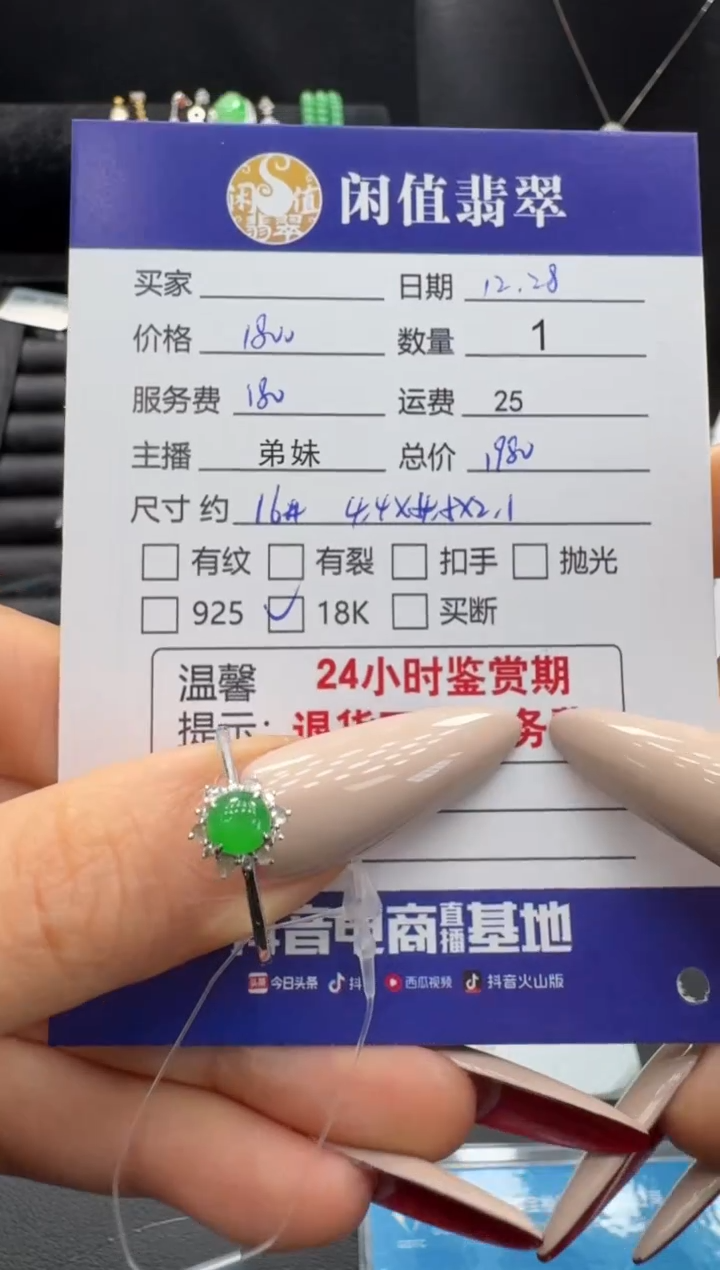 闲值翡翠 闲值翡翠
买家 日期 12.28
价格 1800 数量 1
服务费 180 运费 25
主播 弟妹 总价 1980
尺寸 约 16# 4.4X4.5X2.1
有纹 有裂 扣手 抛光
925 18K 买断
温馨 24小时鉴赏期
提示: 退货 务
音电商直播基地
今日头条 抖 西瓜视频 抖音火山版